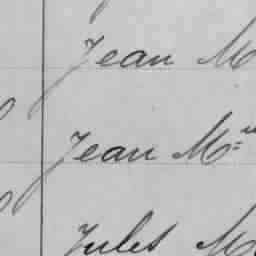 Jean M
Jean M.ie
Jules M